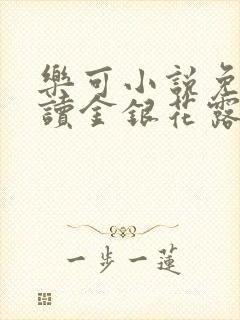 樂可小說免
讀金銀花露
一步一蓮